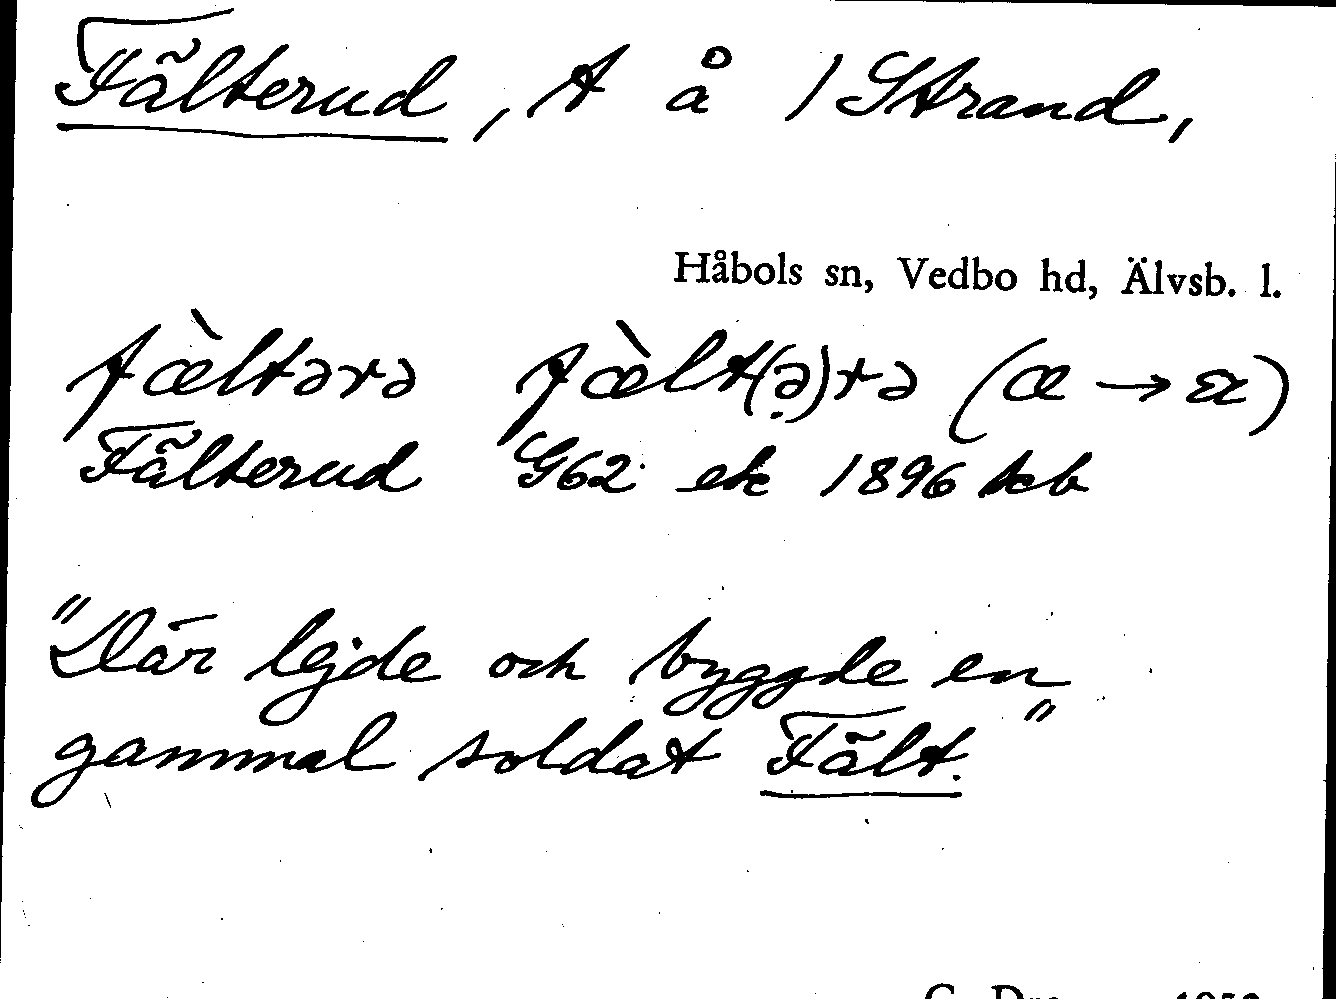 Fälterud, t å 1 Strand,
Håbols sn, Vedbo hd, Älvsb. l.
fæ̀ltərə fæ̀lt(ə̣)rə (æ → a)
Fälterud G62 ek 1896 bcb
"Där lejde och byggde en
gammal soldat Fält."